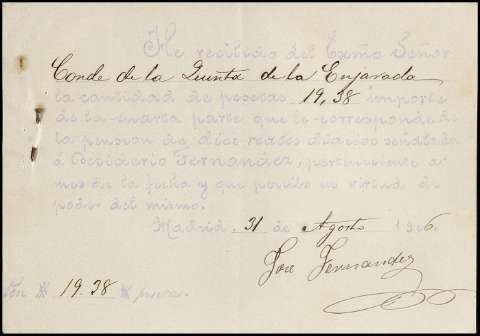 He recibido del Excmo Señor
Conde de la Quinta de la Enjarada
la cantidad de pesetas 19,38 importe
de la cuarta parte que le corresponde de
la pension de diez reales diarios señalada
á Desiderio Fernandez, perteneciente a
mes de la fecha y que percibo en virtud de
poder del mismo.
Madrid 31 de Agosto 1906.
José Fernandez
Son # 19.38 # pesetas.